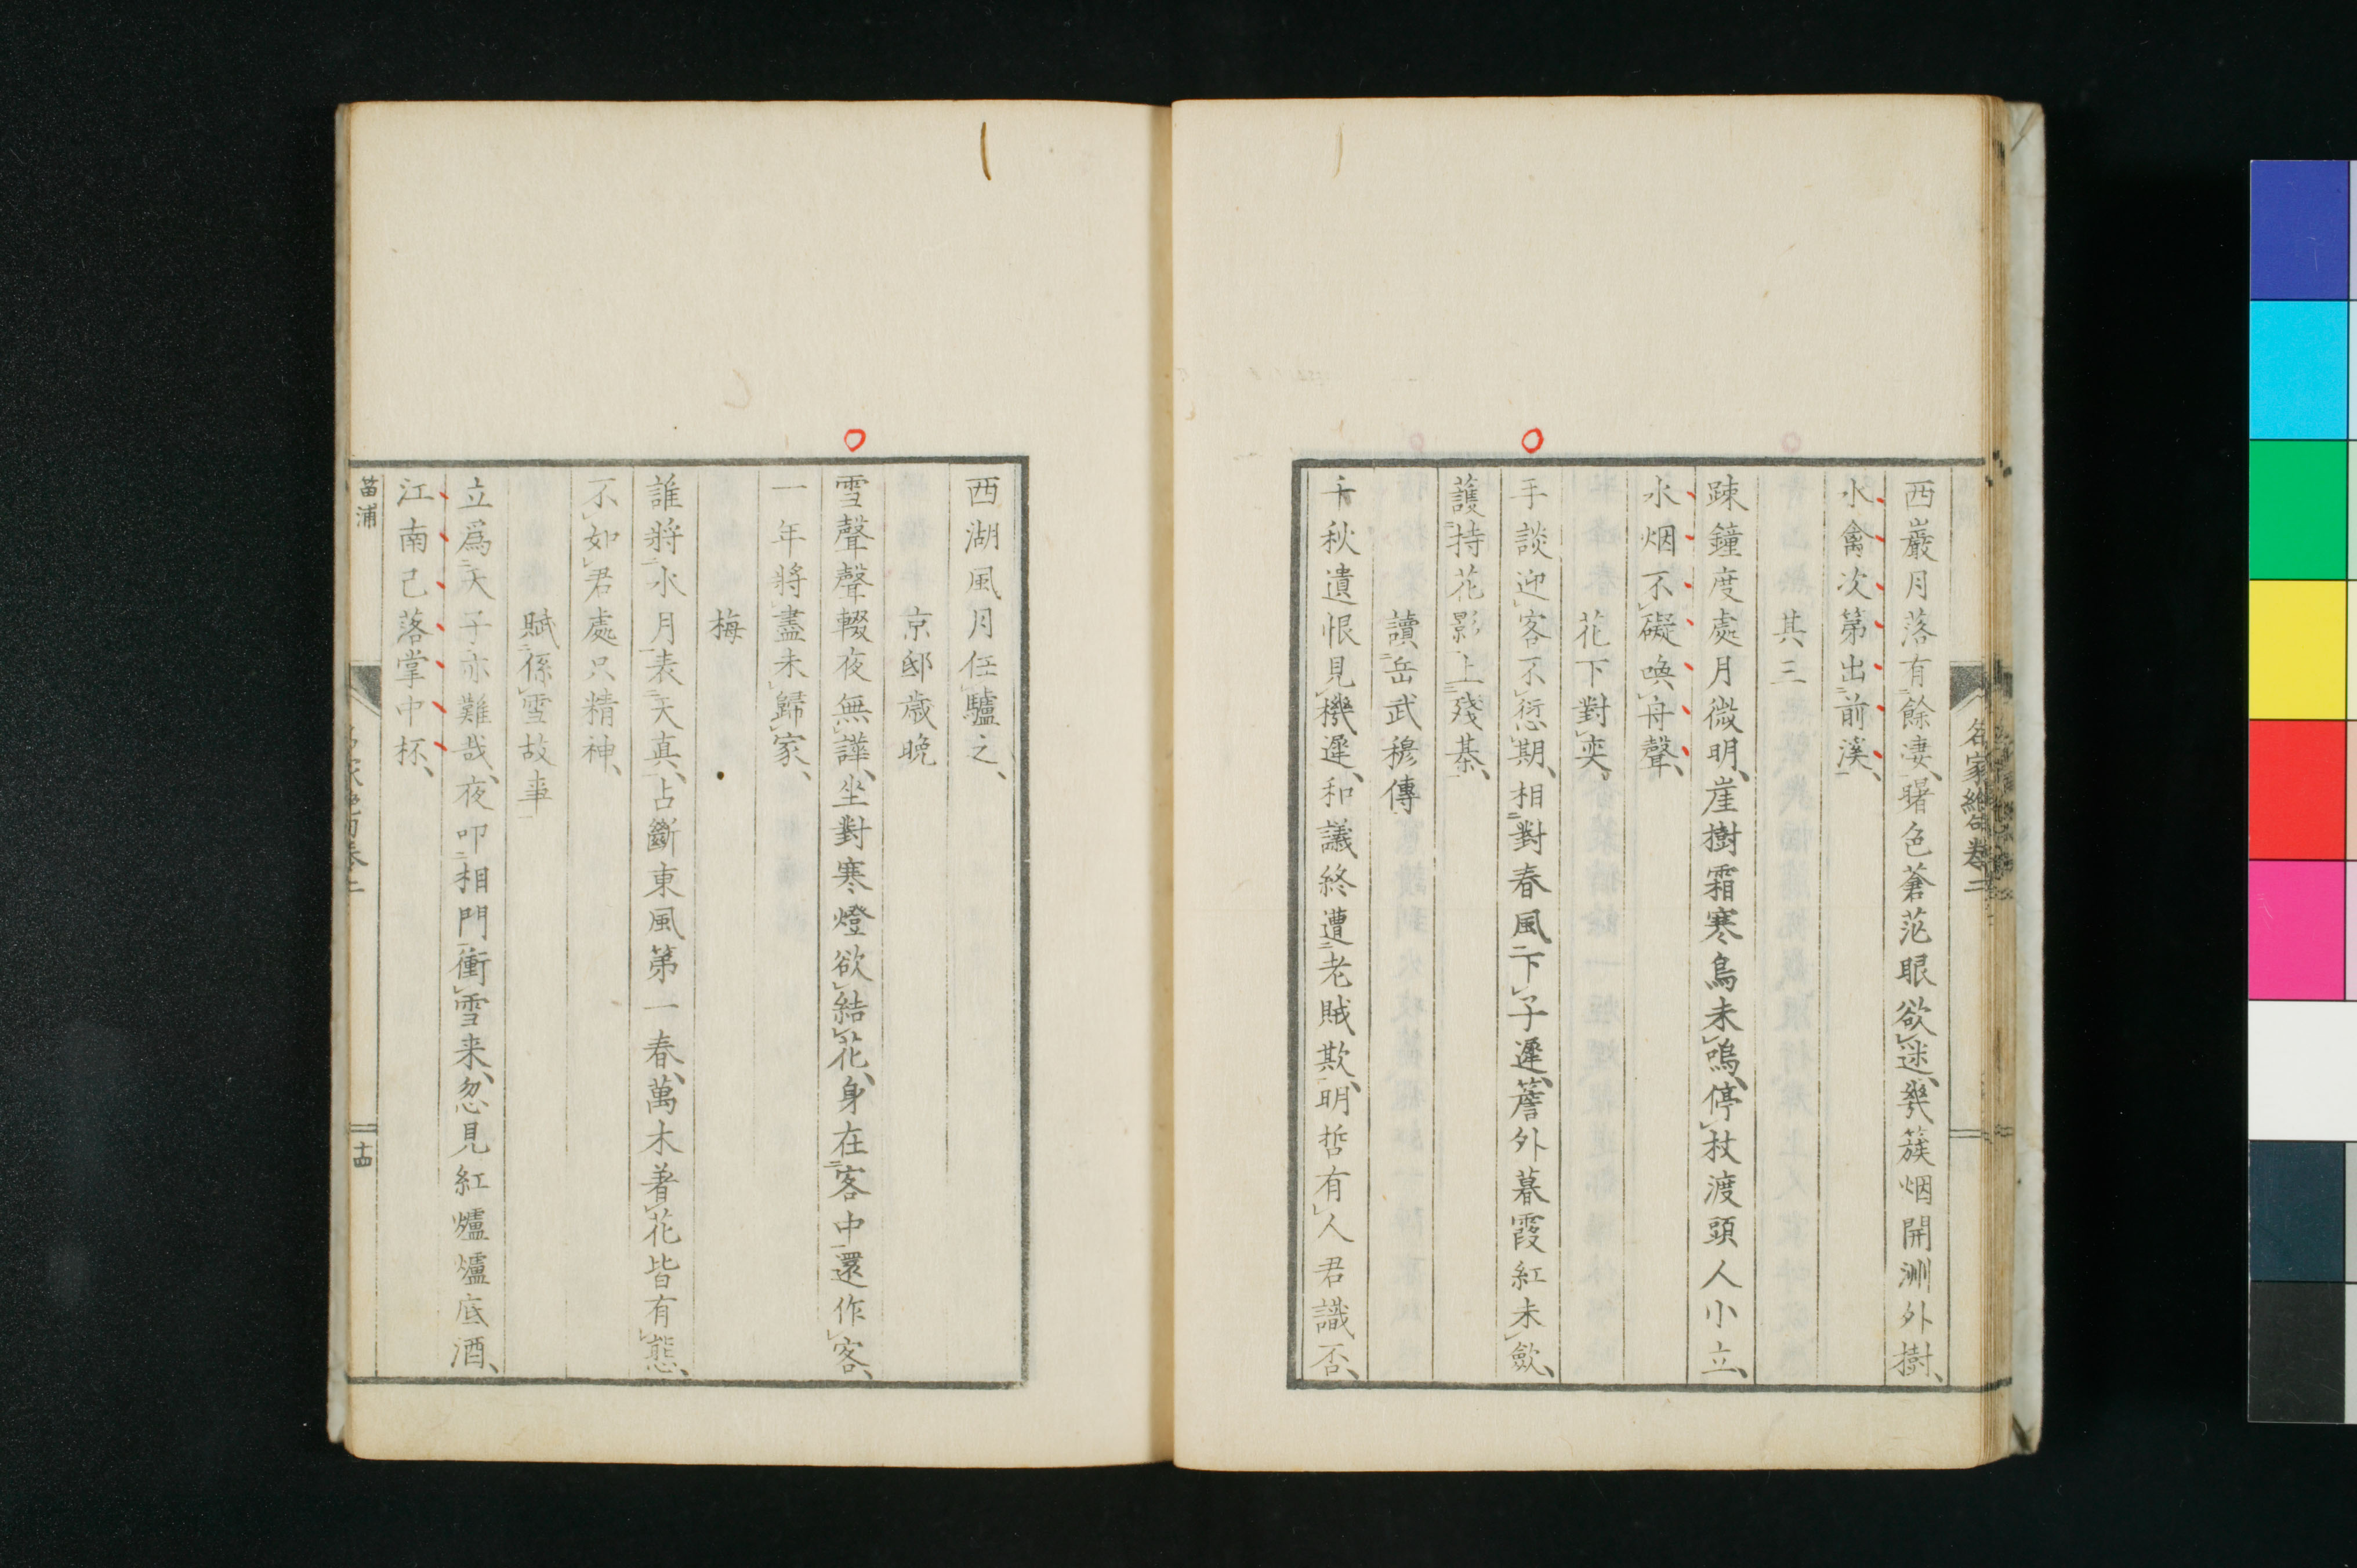 名家絶句卷二
西巖月落有餘凄、曙色蒼茫眼欲迷、幾簇烟開洲外樹、
水禽次第出前溪、
其三
踈鐘度處月微明、崖樹霜寒烏未鳴、停杖渡頭人小立、
水烟不礙喚舟聲、
花下對奕
手談迎客不愆期、相對春風下子遲、簷外暮霞紅未斂、
護持花影上殘棊、
讀岳武穆傳
千秋遺恨見機遲、和議終遭老賊欺、明哲有人君識否、
西湖風月任驢之、
京邸歳晩
雪聲聲輟夜無譁、坐對寒燈欲結花、身在客中還作客、
一年將盡未歸家、
梅
誰將水月表天真、占斷東風第一春、萬木著花皆有態、
不如君處只精神、
賦係雪故事
立爲天子亦難哉、夜叩相門衝雪来、忽見紅爐爐底酒、
江南已落掌中杯、
苗浦
十四